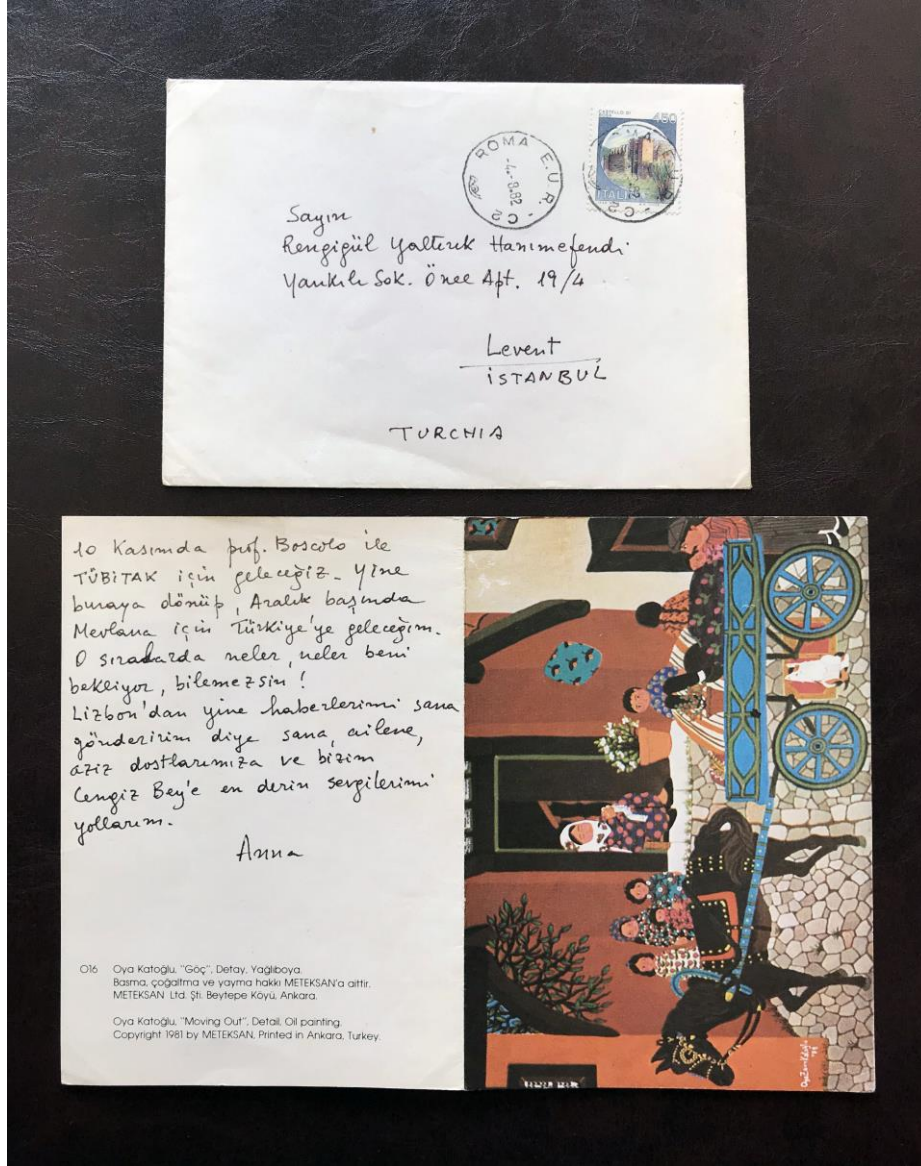 ROMA E.U.R. - C2
-4.-8.82
450
ITALIA
Sayın
Rengigül Yaltırık Hanımefendi
Yankılı Sok. Önce Apt. 19/4
Levent
İSTANBUL
TURCHIA
10 Kasımda prof. Boscolo ile
TÜBİTAK için geleceğiz. Yine
buraya dönüp, Aralık başında
Mevlana için Türkiye'ye geleceğim.
O sıralarda neler, neler beni
bekliyor, bilemezsin!
Lizbon'dan yine haberlerimi sana
gönderirim diye sana, ailene,
aziz dostlarımıza ve bizim
Cengiz Bey'e en derin sevgilerimi
yollarım.
Anna
016 Oya Katoğlu, "Göç", Detay, Yağlıboya.
Basma, çoğaltma ve yayma hakkı METEKSAN'a aittir.
METEKSAN Ltd. Şti. Beytepe Köyü, Ankara.
Oya Katoğlu, "Moving Out", Detail, Oil painting.
Copyright 1981 by METEKSAN, Printed in Ankara, Turkey.